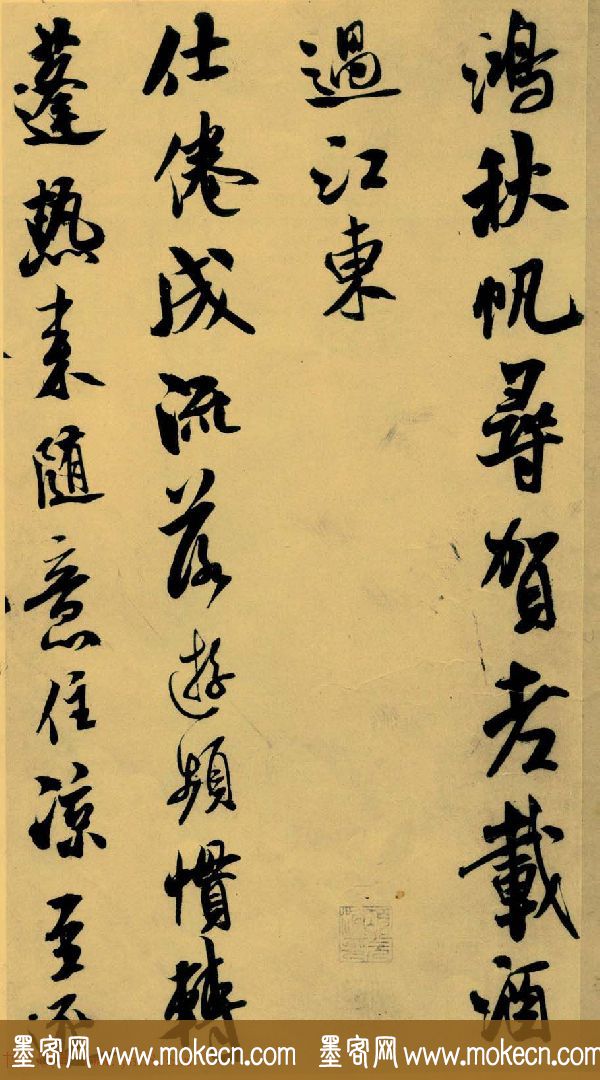 鴻秋帆尋賀老載酒
過江東
仕倦成流落遊頻慣轉
蓬熱来随意住凉至還
墨客网 www.mokecn.com 墨客网 www.mokecn.com